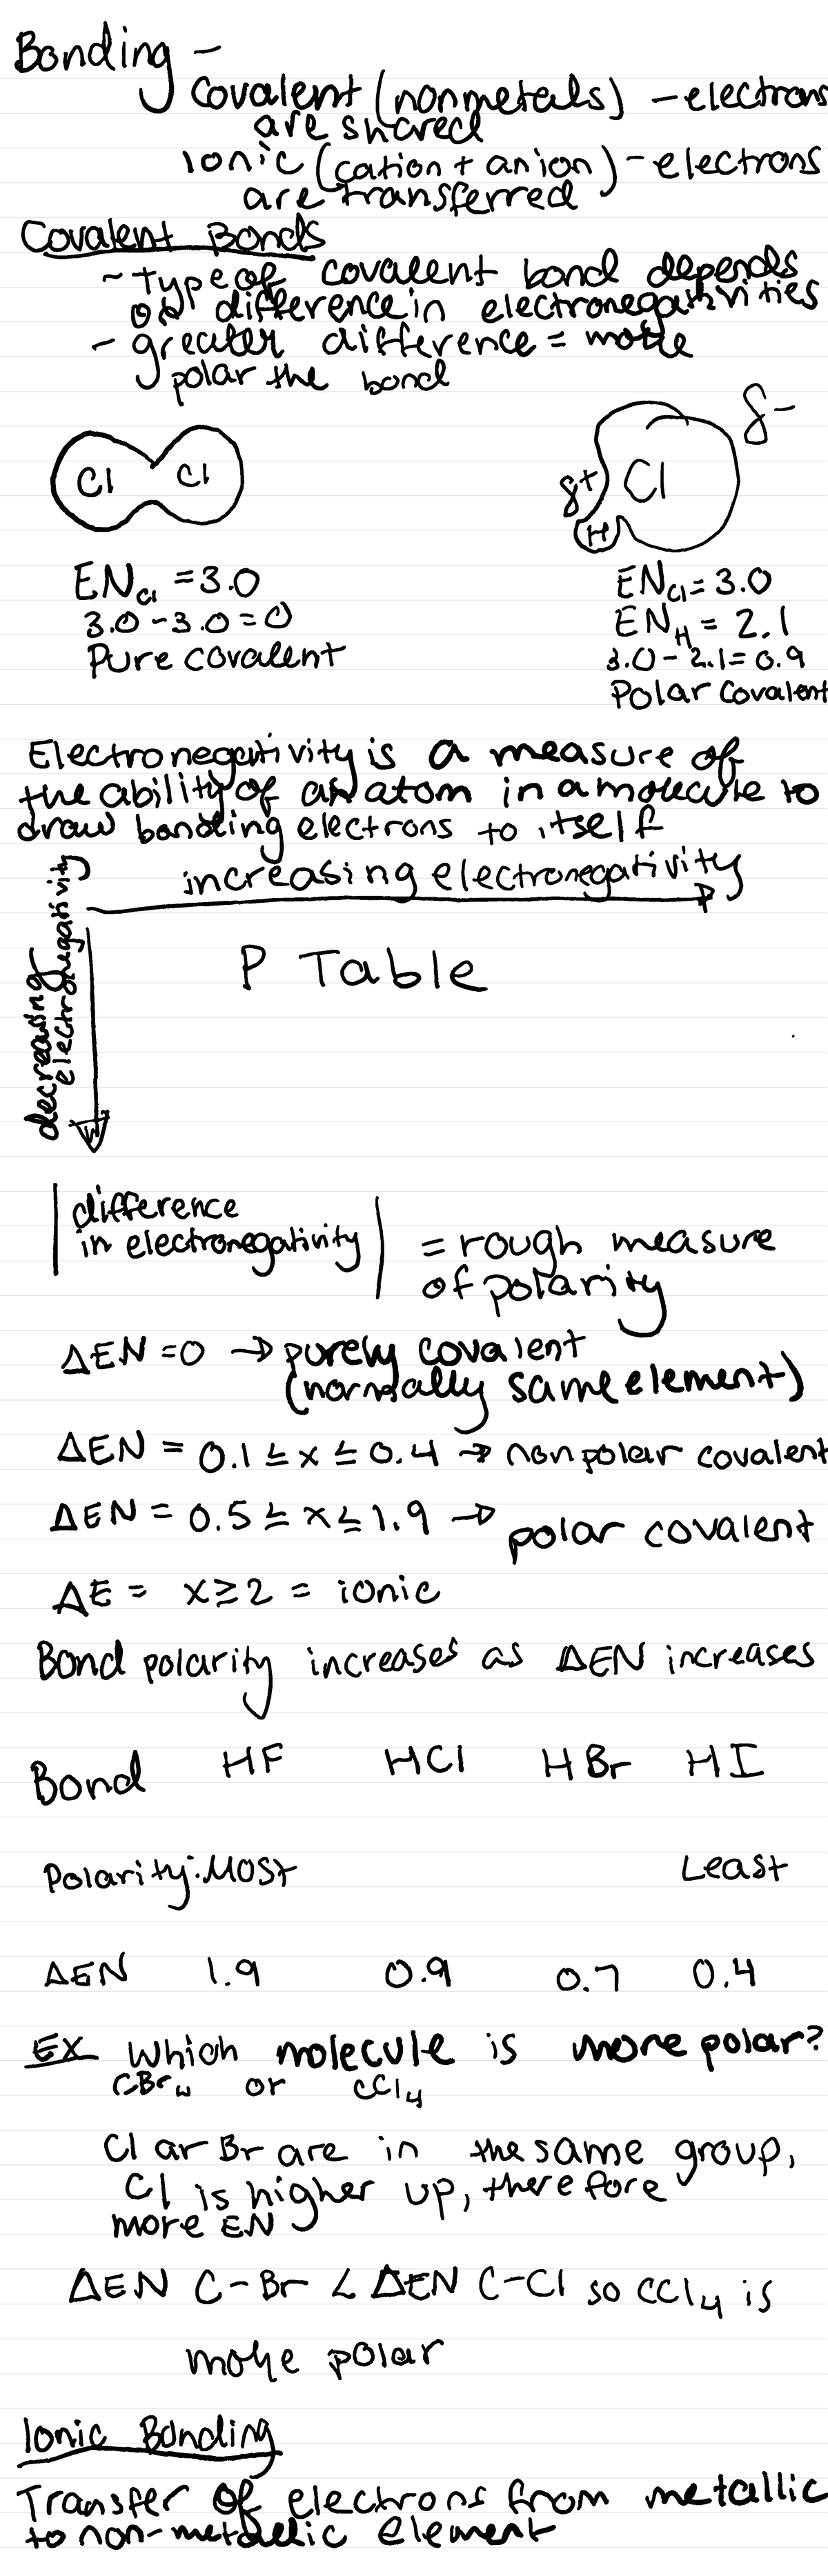 Bonding -
Covalent (nonmetals) - electrons
are shared
ionic (cation + anion) - electrons
are transferred
Covalent Bonds
~ type of covalent bond depends
on difference in electronegativities
- greater difference = more
polar the bond
Cl Cl
δ-
δ+ Cl
H
EN Cl = 3.0
3.0 - 3.0 = 0
Pure covalent
EN Cl = 3.0
EN H = 2.1
3.0 - 2.1 = 0.9
Polar covalent
Electronegativity is a measure of
the ability of an atom in a molecule to
draw bonding electrons to itself
increasing electronegativity
decreasing
electronegativity
P Table
| difference
in electronegativity | = rough measure
of polarity
ΔEN = 0 → purely covalent
(normally same element)
ΔEN = 0.1 ≤ x ≤ 0.4 → nonpolar covalent
ΔEN = 0.5 ≤ x ≤ 1.9 → polar covalent
ΔE = x ≥ 2 = ionic
Bond polarity increases as ΔEN increases
Bond HF HCl HBr HI
Polarity: Most Least
ΔEN 1.9 0.9 0.7 0.4
EX Which molecule is more polar?
CBr4 or CCl4
Cl ar Br are in the same group,
Cl is higher up, therefore
more EN
ΔEN C-Br < ΔEN C-Cl so CCl4 is
more polar
Ionic Bonding
Transfer of electrons from metallic
to non-metallic element